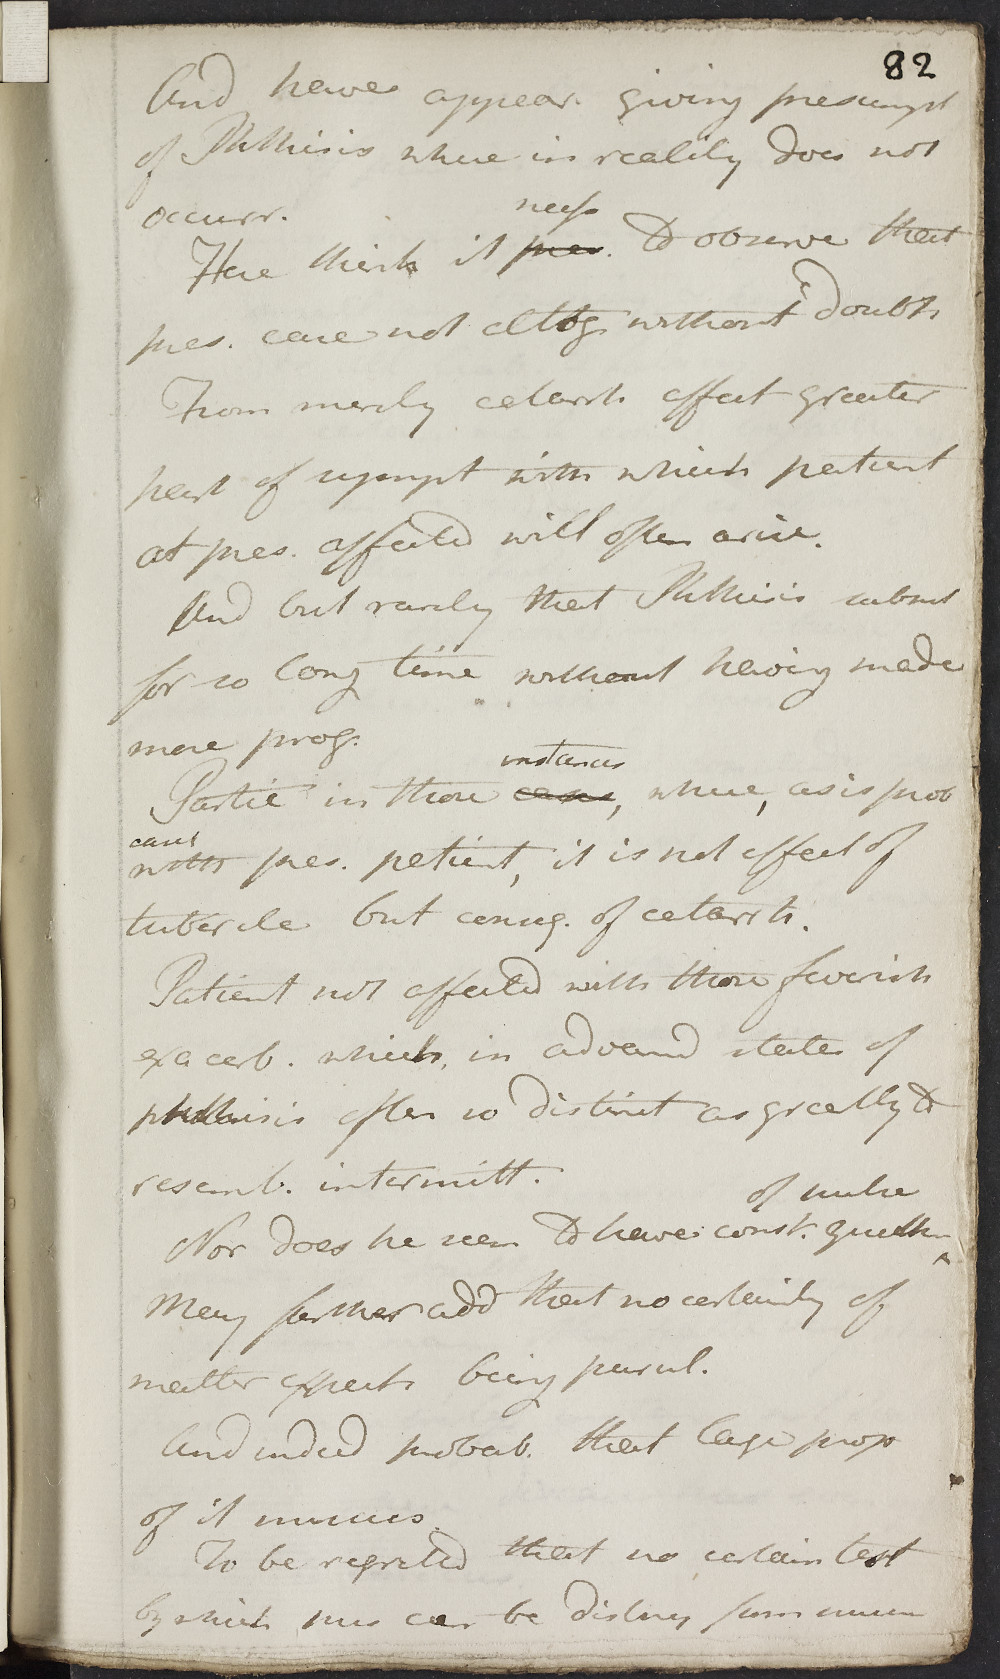 82
And have appear. giving presumpt
of Phthisis where in reality does not
occurr.
necess
Here think it pres. to observe that
pres. case not altog. without doubts
From merely catarrh affect greater
part of sympt with which patient
at pres. affected will often arise.
And but rarely that Phthisis subsist
for so long time without having made
more prog.
instances
Partic in those cases, where, as is prob
case
with pres. patient, it is not effect of
tubercle but conseq. of catarrh.
Patient not affected with those feverish
exacerb. which, in advanced state of
phthisis often so distinct as greatly to
resemb. intermitt.
of pulse
Nor does he seem to have const. quickn
May further add that no certainty of
matter expect being purul.
And indeed probab. that large prop
of it mucus.
To be regreted that no certain test
by which pus can be disting from mucus